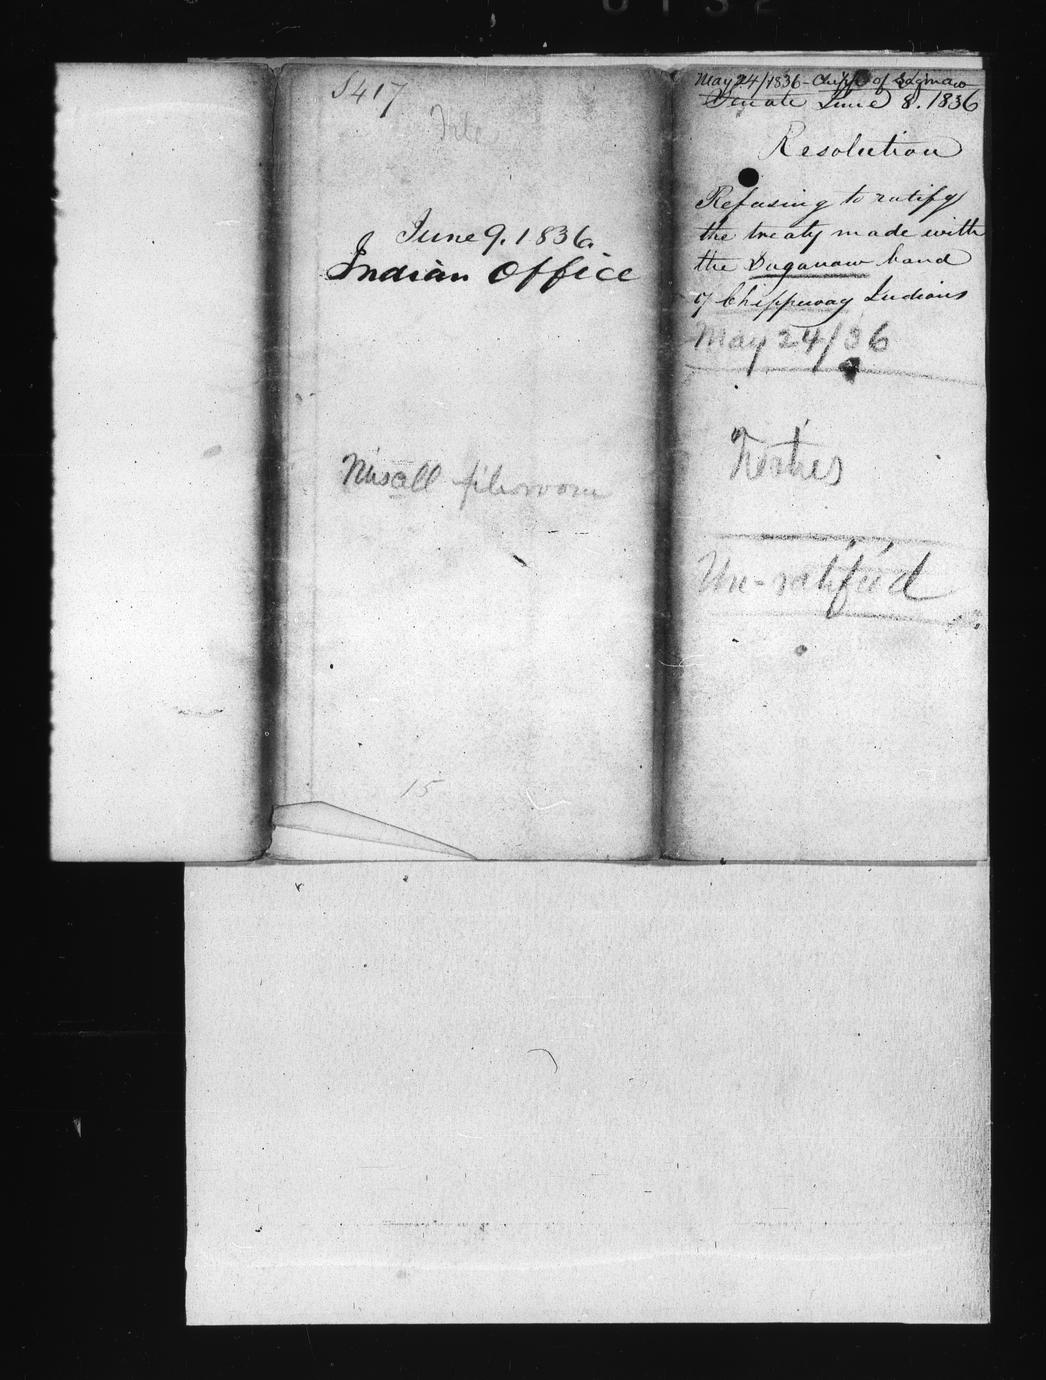 S417
File
June 9. 1836.
Indian Office
Misall file room
15
May 24/1836 - Chipp of Saginaw
Senate June 8. 1836
Resolution
Refusing to ratify
the treaty made with
the Saganaw band
of Chippeway Indians
May 24/36
Un-ratified